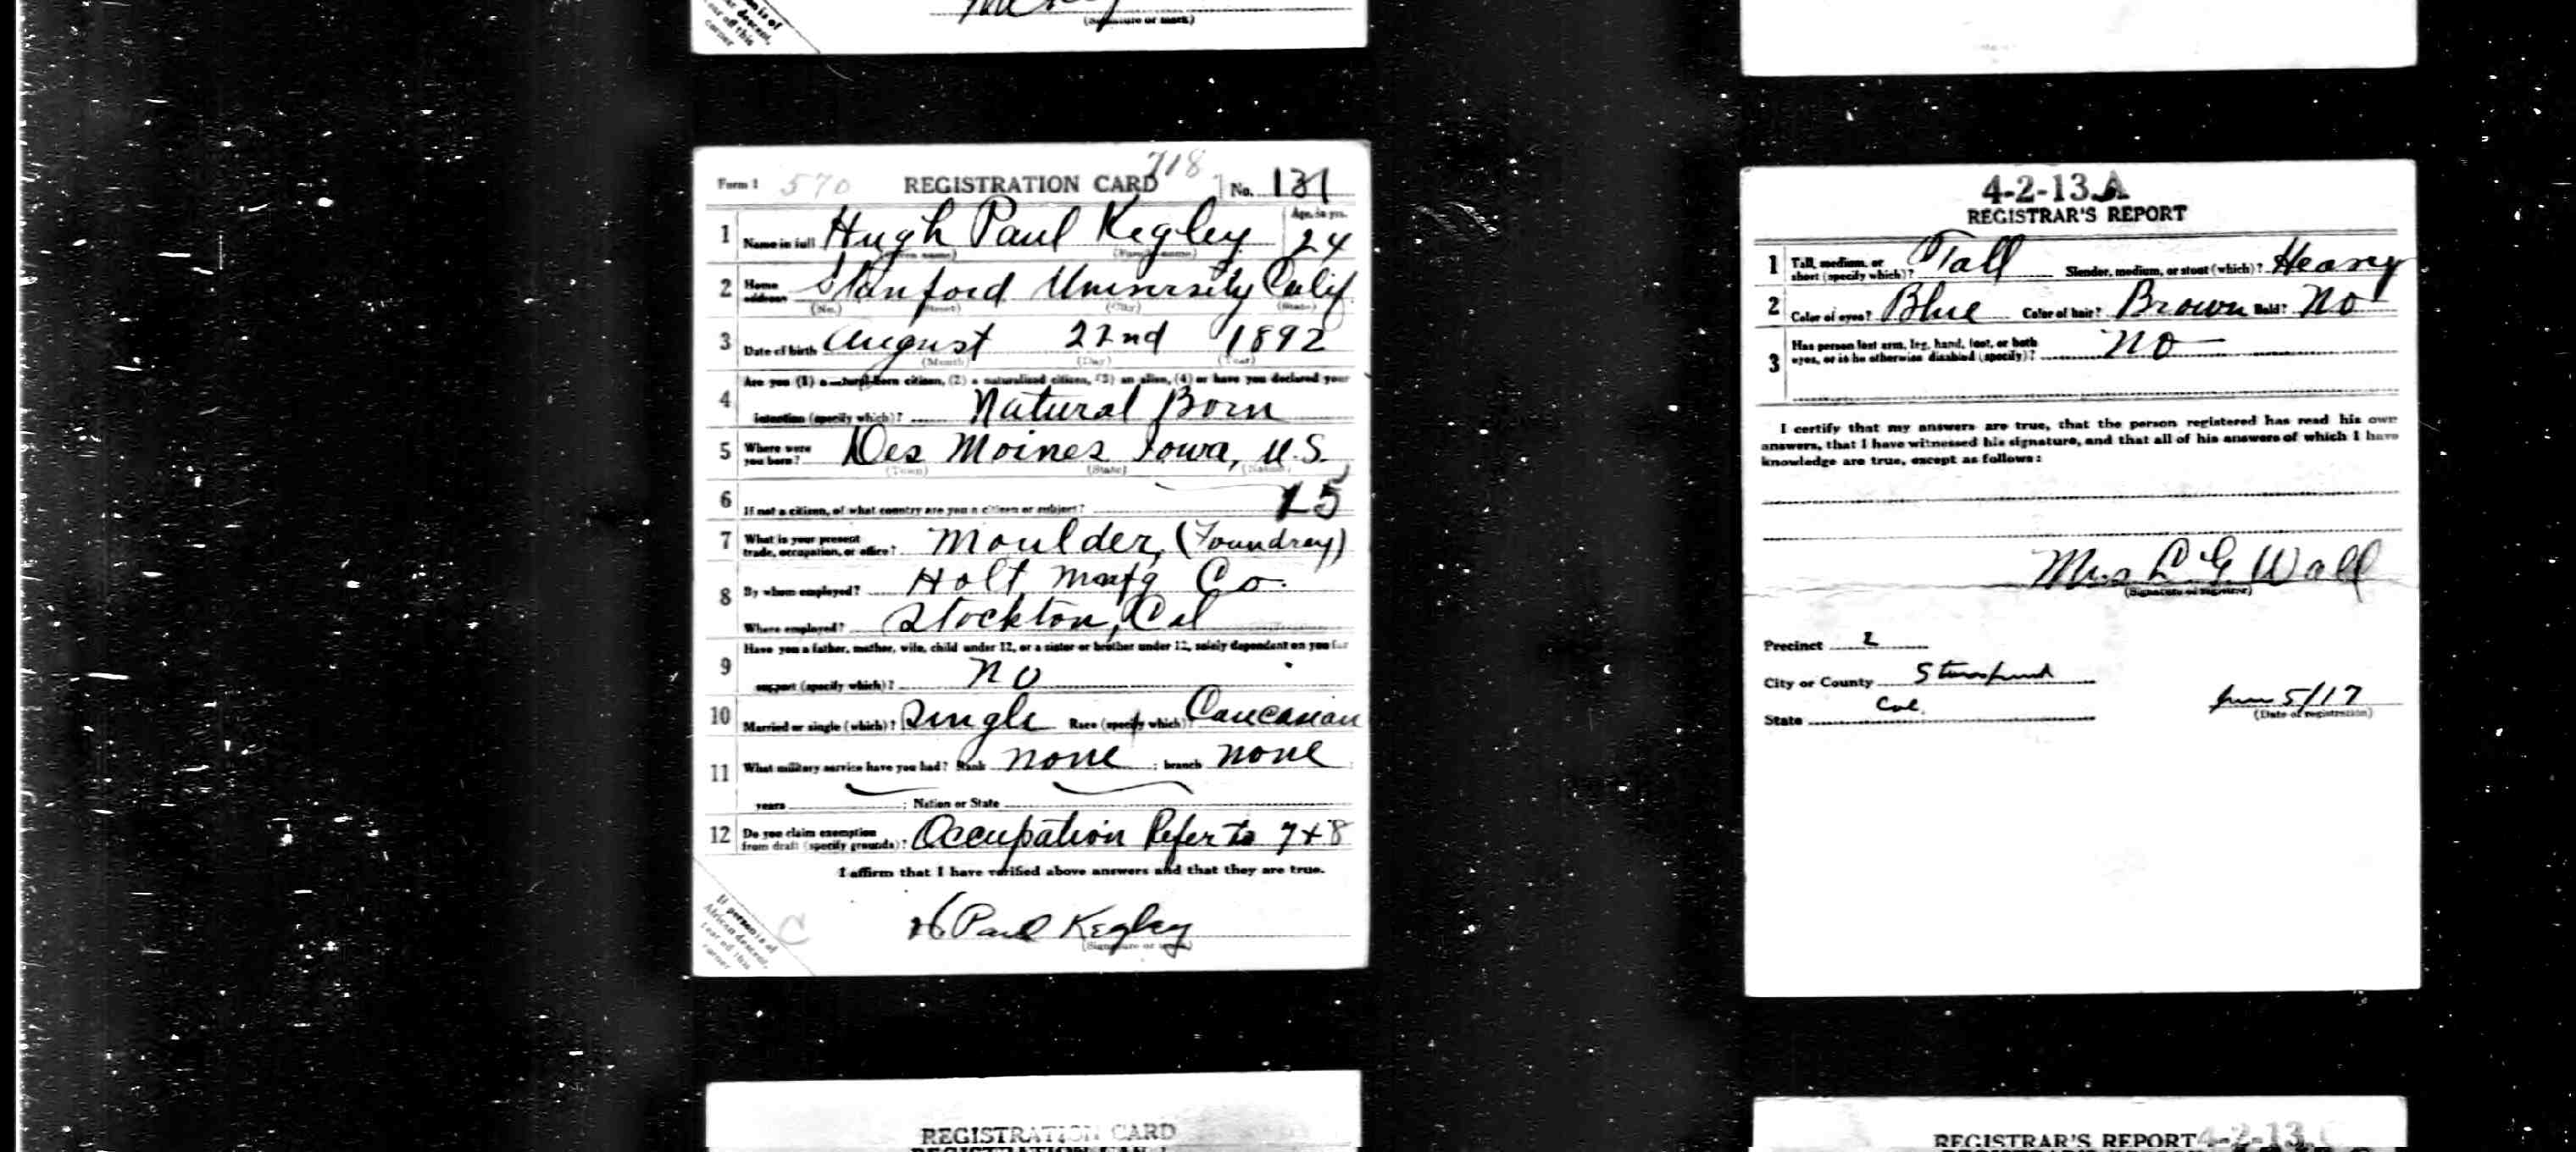 (Signature or mark)
is of
descent,
tear off this
corner
Form 1 570 REGISTRATION CARD 718 No. 131
1 Name in full Hugh Paul Kegley Age, in yrs. 24
(Given name) (Family name)
2 Home address Stanford University Calif
(No.) (Street) (City) (State)
3 Date of birth August 22nd 1892
(Month) (Day) (Year)
4 Are you (1) a natural-born citizen, (2) a naturalized citizen, (3) an alien, (4) or have you declared your
intention (specify which)? Natural Born
5 Where were you born? Des Moines Iowa, U.S.
(Town) (State) (Nation)
6 If not a citizen, of what country are you a citizen or subject? 15
7 What is your present trade, occupation, or office? Moulder, (Foundray)
8 By whom employed? Holt Manfg Co.
Where employed? Stockton, Cal
9 Have you a father, mother, wife, child under 12, or a sister or brother under 12, solely dependent on you for
support (specify which)? No
10 Married or single (which)? Single Race (specify which)? Caucasian
11 What military service have you had? Rank none ; branch none
years ; Nation or State
12 Do you claim exemption from draft (specify grounds)? Occupation Refer to 7+8
I affirm that I have verified above answers and that they are true.
H Paul Kegley
(Signature or mark)
If person is of
African descent,
tear off this
corner
C
REGISTRATION CARD
4-2-13 A
REGISTRAR'S REPORT
1 Tall, medium, or short (specify which)? Tall Slender, medium, or stout (which)? Heavy
2 Color of eyes? Blue Color of hair? Brown Bald? No
3 Has person lost arm, leg, hand, foot, or both eyes, or is he otherwise disabled (specify)? No
I certify that my answers are true, that the person registered has read his own
answers, that I have witnessed his signature, and that all of his answers of which I have
knowledge are true, except as follows:
Mrs L. G. Wall
(Signature of registrar)
Precinct 2
City or County Stanford
State Cal.
June 5/17
(Date of registration)
REGISTRAR'S REPORT 4-2-13